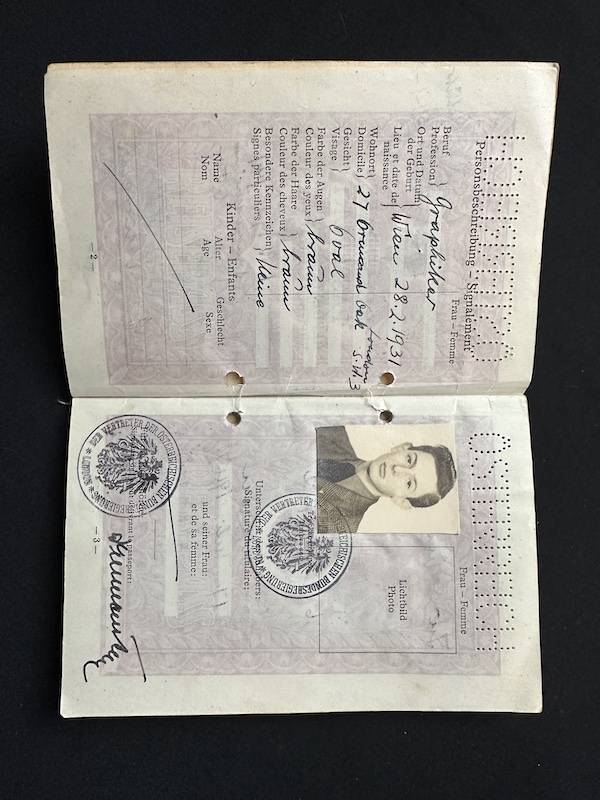 Personsbeschreibung – Signalement
Frau – Femme
Beruf
Profession } Graphiker
Ort und Datum
der Geburt
Lieu et date de
naissance } Wien 28.2.1931
Wohnort
Domicile } 27 London
S.W.3
Gesicht
Visage } Oval
Farbe der Augen
Couleur des yeux } braun
Farbe der Haare
Couleur des cheveux } braun
Besondere Kennzeichen
Signes particuliers } keine
Kinder – Enfants
Name Alter Geschlecht
Nom Age Sexe
– 2 –
Frau – Femme
Lichtbild
Photo
DER VERTRETER DER ÖSTERREICHISCHEN BUNDESREGIERUNG
Unterschrift des Inhabers:
Signature du titulaire:
und seiner Frau:
et de sa femme:
DER VERTRETER DER ÖSTERREICHISCHEN BUNDESREGIERUNG * LONDON *
– 3 –